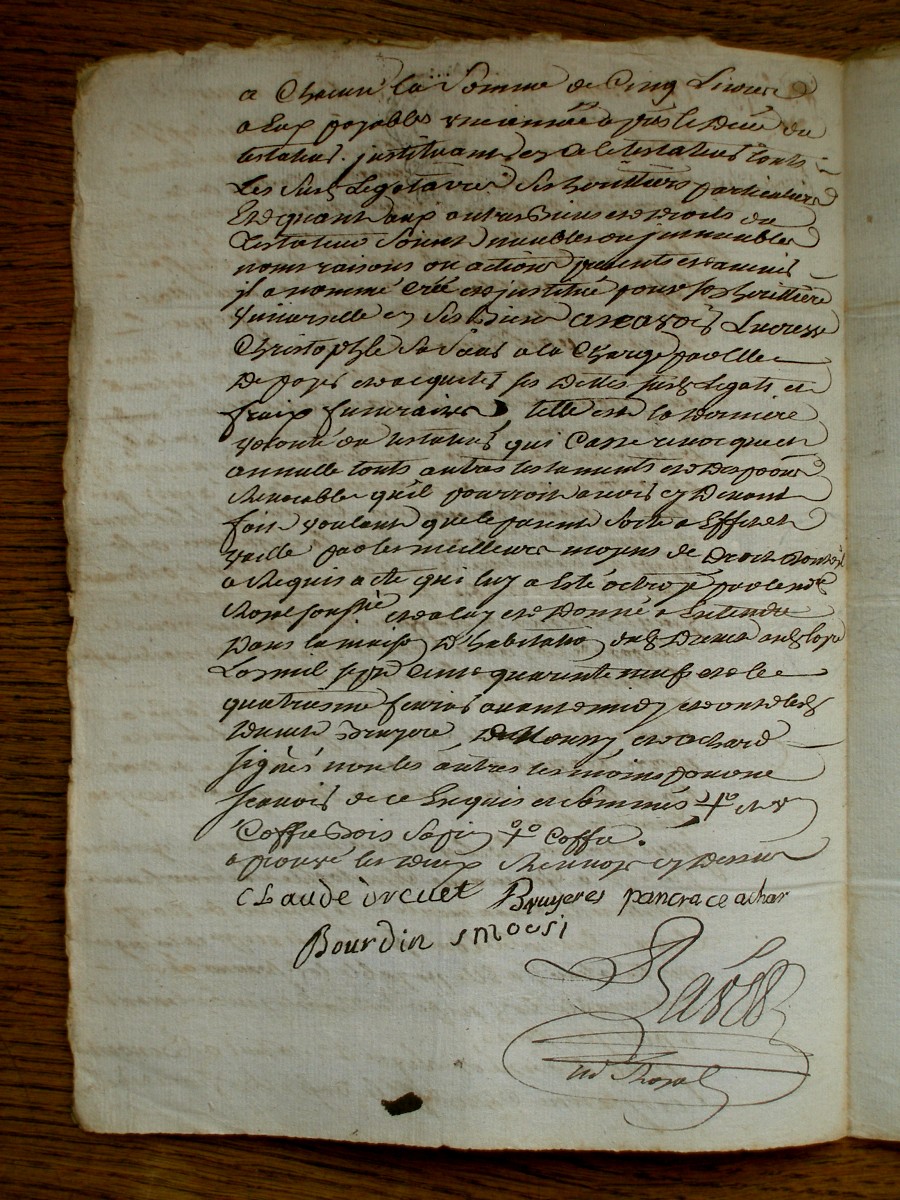 a Chacune la Somme de Cinq Livres
a Eux payables une année apres le Deces du
testateur. justituant en ce le testateur touts
Les Susd Legataires Ses heritiers particuliers
Et de quant aux autres Biens et droits du
Testateur Soient meubles ou jmmeubles
noms raisons ou actions presents et avenir
jl a nommé Créé et justitué pour Son heritiere
Universelle en Ses Biens a scavoir Lucresse
Christophle Sa a la Charge par Elle
De payer et acquiter Ses Dettes susd Legats et
fraix funeraires telle est la Derniere
volonté du testateur qui Casse revocque et
annulle touts autres testaments et
Revocables qu'il pourroit avoir cy Devant
fait voulant que le present Sorte a Effet et
vaille par les meilleurs moyens de Droit
a Requis acte qui luy a Esté octroyé par le no.re
Royal soussigné et a luy et Donné a Entendre
Dans la maison D'habitation dud
Lan mil sept Cent quarante neuf et le
quatriesme fevrier avant midy et ont lesd
Bruyere, et achard
signés non les autres tesmoins pour ne
scavoir de ce Enquis et Sommés et
Coffre Bois Sapin Coffre.
aprouvé les deux Renvoys cy Dessus
CLaude Bruyeres pancrace achar
Bourdin
no Royal